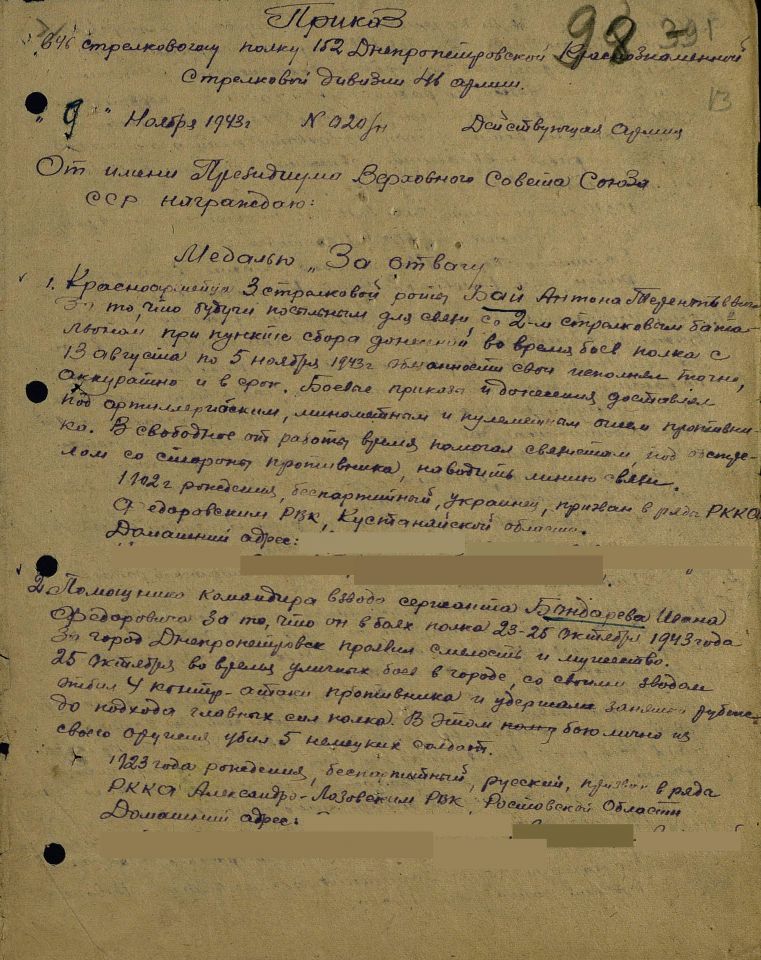 Приказ
98 391
646 стрелковому полку 152 Днепропетровской Краснознаменной
Стрелковой дивизии 46 армии.
13
"9" Ноября 1943г N 020/н Действующая армия
От имени Президиума Верховного Совета Союза
ССР награждаю:
Медалью "За отвагу"
1. Красноармейца 3 стрелковой роты Бай Антона
За то, что будучи посыльным для связи, со 2-м стрелковым бата-
льоном при пункте сбора донесений во время боев полка с
13 августа по 5 ноября 1943г обязанности свои исполнял точно,
аккуратно и в срок. Боевые приказы и донесения доставлял
под артиллерийским, минометным и пулеметным огнем противни-
ка. В свободное от работы время помогал связистам, под обстре-
лом со стороны противника, наводить линию связи.
1902г рождения, беспартийный, украинец, призван в ряды РККА
Федоровским РВК, Кустанайской области.
Домашний адрес:
2. Помощника командира взвода сержанта Бондарева Ивана
Федоровича За то, что он в боях полка 23-25 октября 1943 года
За город Днепропетровск проявил смелость и мужество.
25 октября во время уличных боев в городе, со своим взводом
отбил 4 контр-атаки противника и удержал занятый рубеж
до подхода главных сил полка. В этом бою лично из
своего оружия убил 5 немецких солдат.
1923 года рождения, беспартийный, русский, призван в ряды
РККА Александро-Лозовским РВК, Ростовской Области
Домашний адрес: